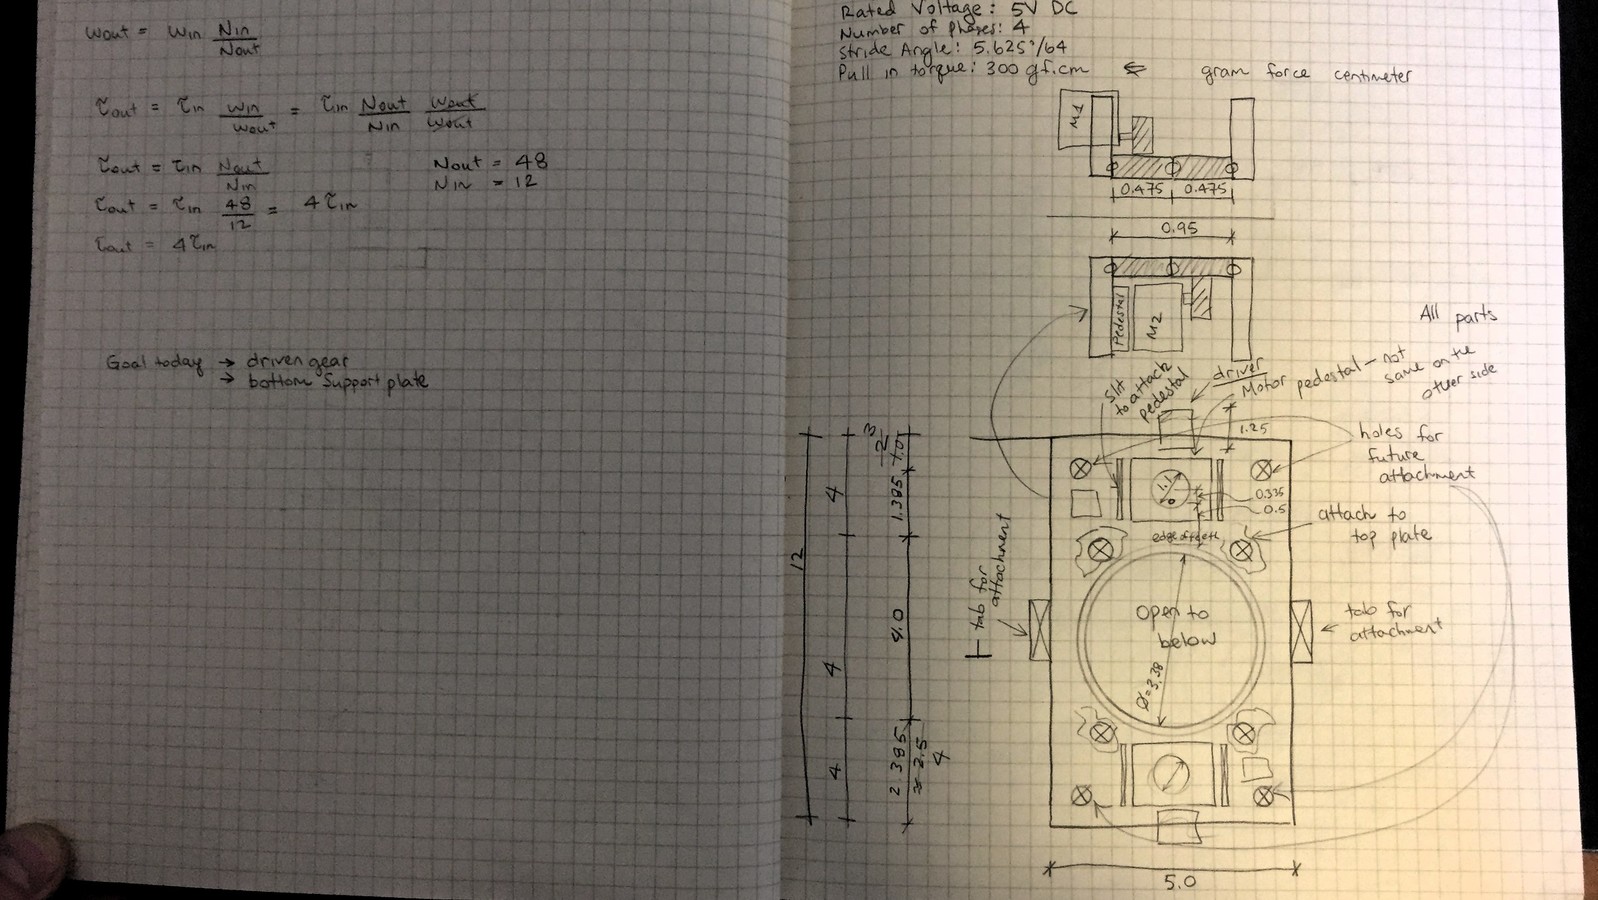 ωout = ωin Nin/Nout
τout = τin ωin/ωout = τin Nout/Nin ωout/ωout
τout = τin Nout/Nin
Nout = 48
Nin = 12
τout = τin 48/12 = 4τin
τout = 4τin
Goal today → driven gear
→ bottom support plate
Rated Voltage: 5V DC
Number of phases: 4
Stride Angle: 5.625°/64
Pull in torque: 300 gf.cm ⇐ gram force centimeter
M1
0.475 0.475
0.95
Pedestal
M2
All parts
same on the
other side
slit
to attach
pedestal
driver
Motor pedestal - not
1.25
holes for
future
attachment
1.1
0.335
0.5
attach to
top plate
edge of teeth
tab for
attachment
Open to
below
Ø=3.38
tab for
attachment
12
4
4
4
1.0
1.385
4.0
2.385
≈ 2.5
4
5.0